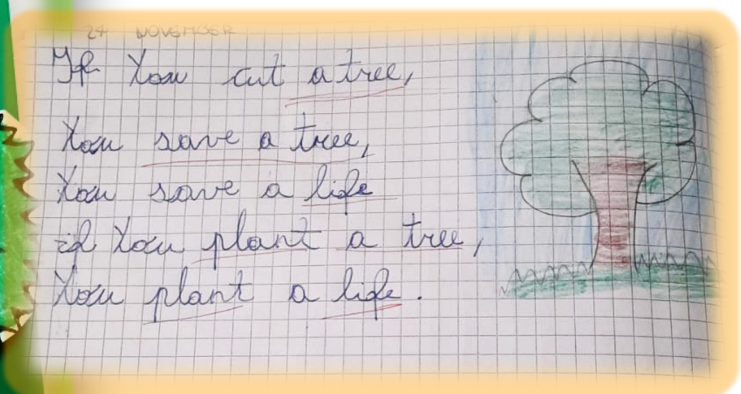 24 NOVEMBER
If You cut a tree,
You save a tree,
You save a life
if You plant a tree,
You plant a life.